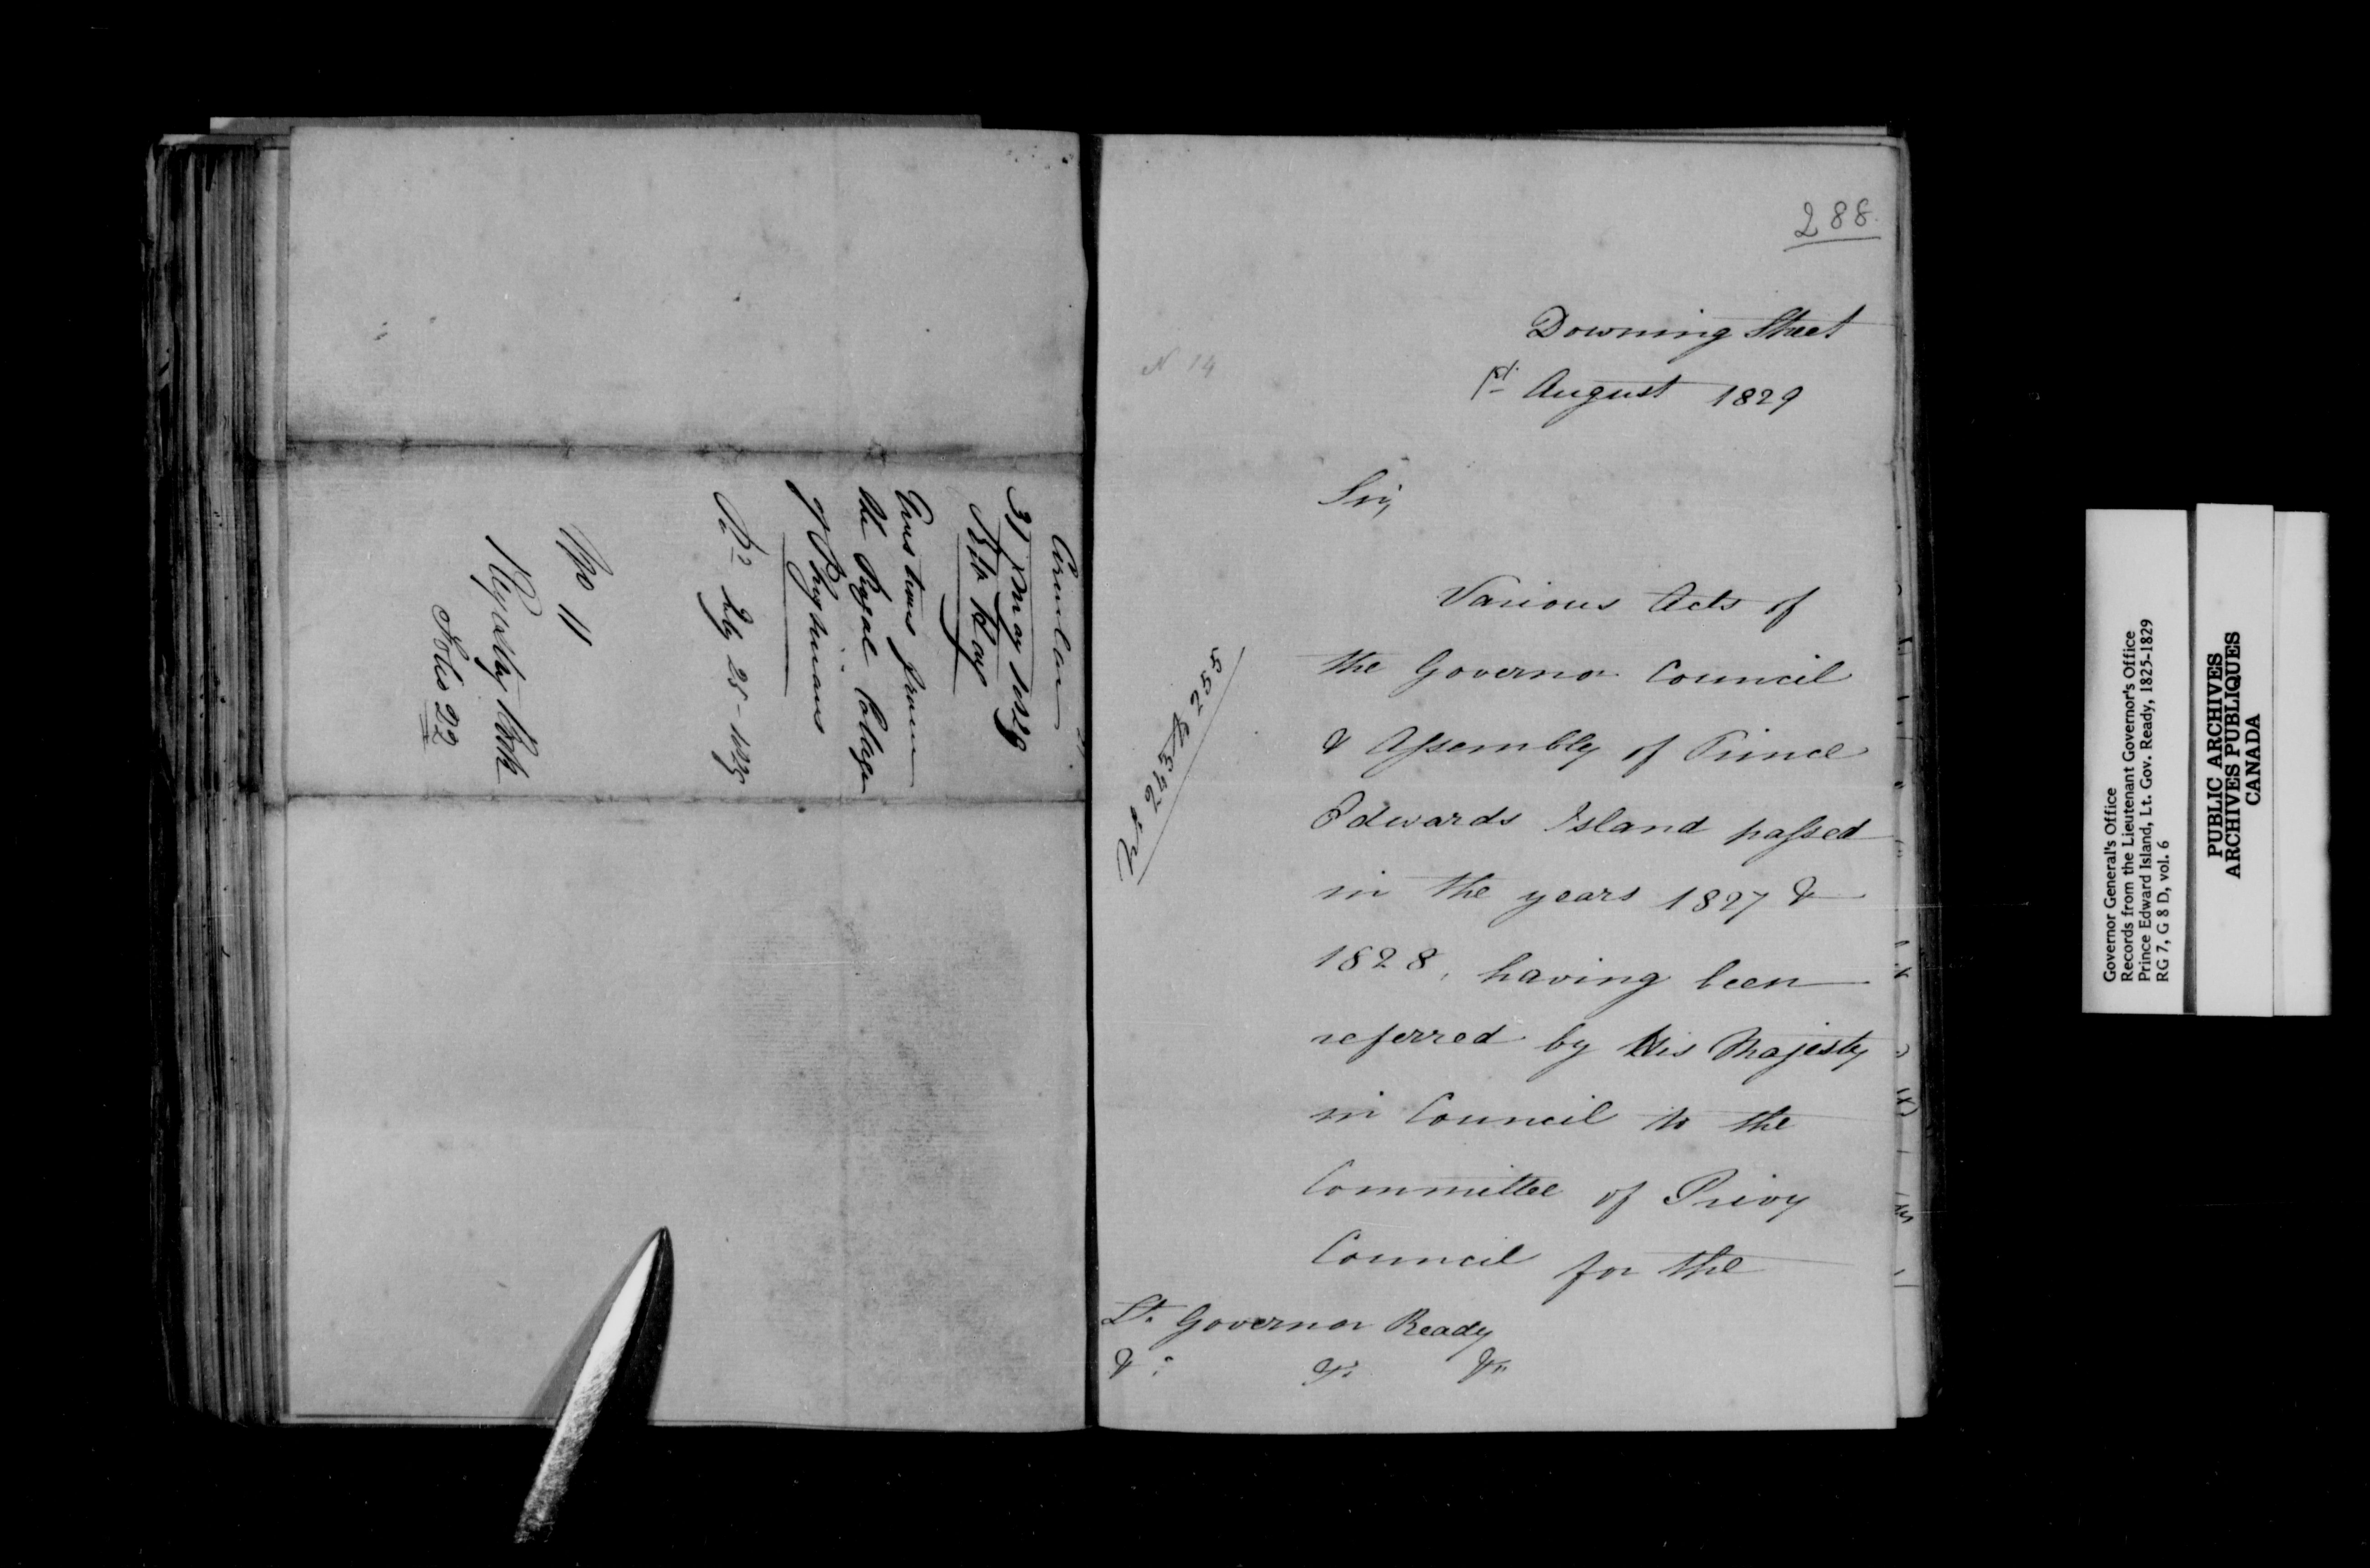 Circular
31 May 1829
Sir R. Hay
Questions from
the Royal College
of Physicians
Rd. July 25 - 1829
No 11
Registry Book
Folio 22
288.
N 14
Downing Street
1st. August 1829
Sir,
Various Acts of
the Governor Council
& Assembly of Prince
Edwards Island passed
in the years 1827 &
1828, having been
referred by His Majesty
in Council to the
Committee of Privy
Council for the
Lt. Governor Ready
&c. &c. &c.
255
Governor General's Office
Records from the Lieutenant Governor's Office
Prince Edward Island, Lt. Gov. Ready, 1825-1829
RG 7, G 8 D, vol. 6
PUBLIC ARCHIVES
ARCHIVES PUBLIQUES
CANADA